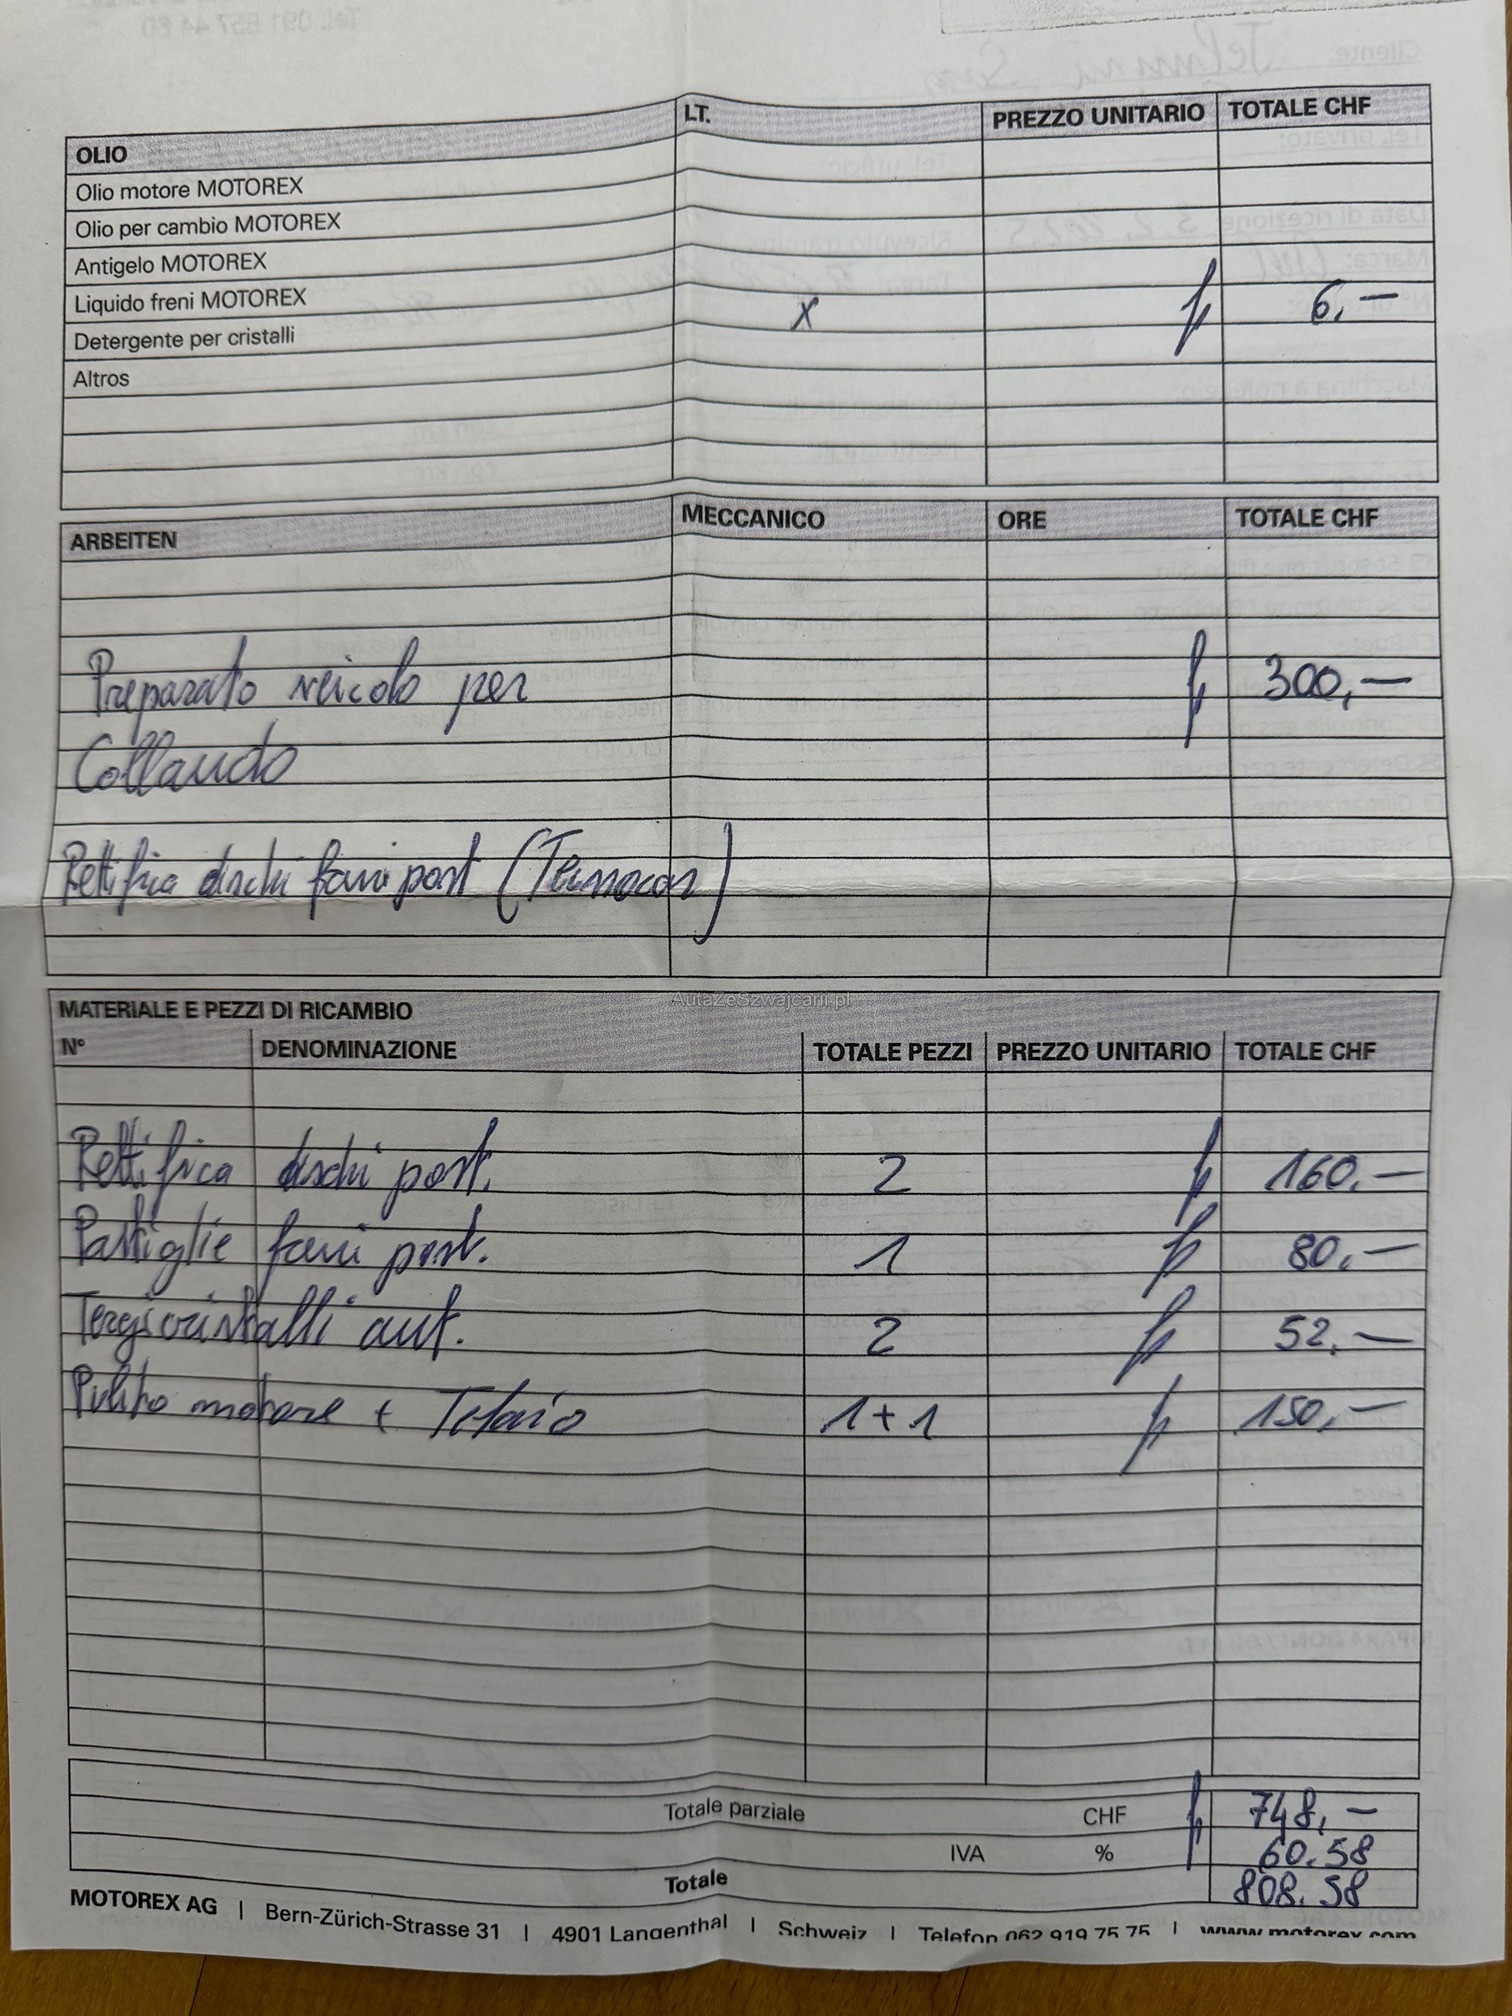 OLIO LT. PREZZO UNITARIO TOTALE CHF
Olio motore MOTOREX
Olio per cambio MOTOREX
Antigelo MOTOREX
Liquido freni MOTOREX x fr 6,—
Detergente per cristalli
Altros
ARBEITEN MECCANICO ORE TOTALE CHF
Preparato veicolo per fr 300,—
Collaudo
Rettifica dischi freni post (Tecnocar)
MATERIALE E PEZZI DI RICAMBIO
AutaZeSzwajcarii.pl
N° DENOMINAZIONE TOTALE PEZZI PREZZO UNITARIO TOTALE CHF
Rettifica dischi post. 2 fr 160.—
Pastiglie freni post. 1 fr 80.—
Tergicristalli aut. 2 fr 52.—
Pulito motore + Telaio 1+1 fr 150.—
Totale parziale CHF fr 748,—
IVA % 60.58
Totale 808.58
MOTOREX AG | Bern-Zürich-Strasse 31 | 4901 Langenthal | Schweiz | Telefon 062 919 75 75 | www.motorex.com